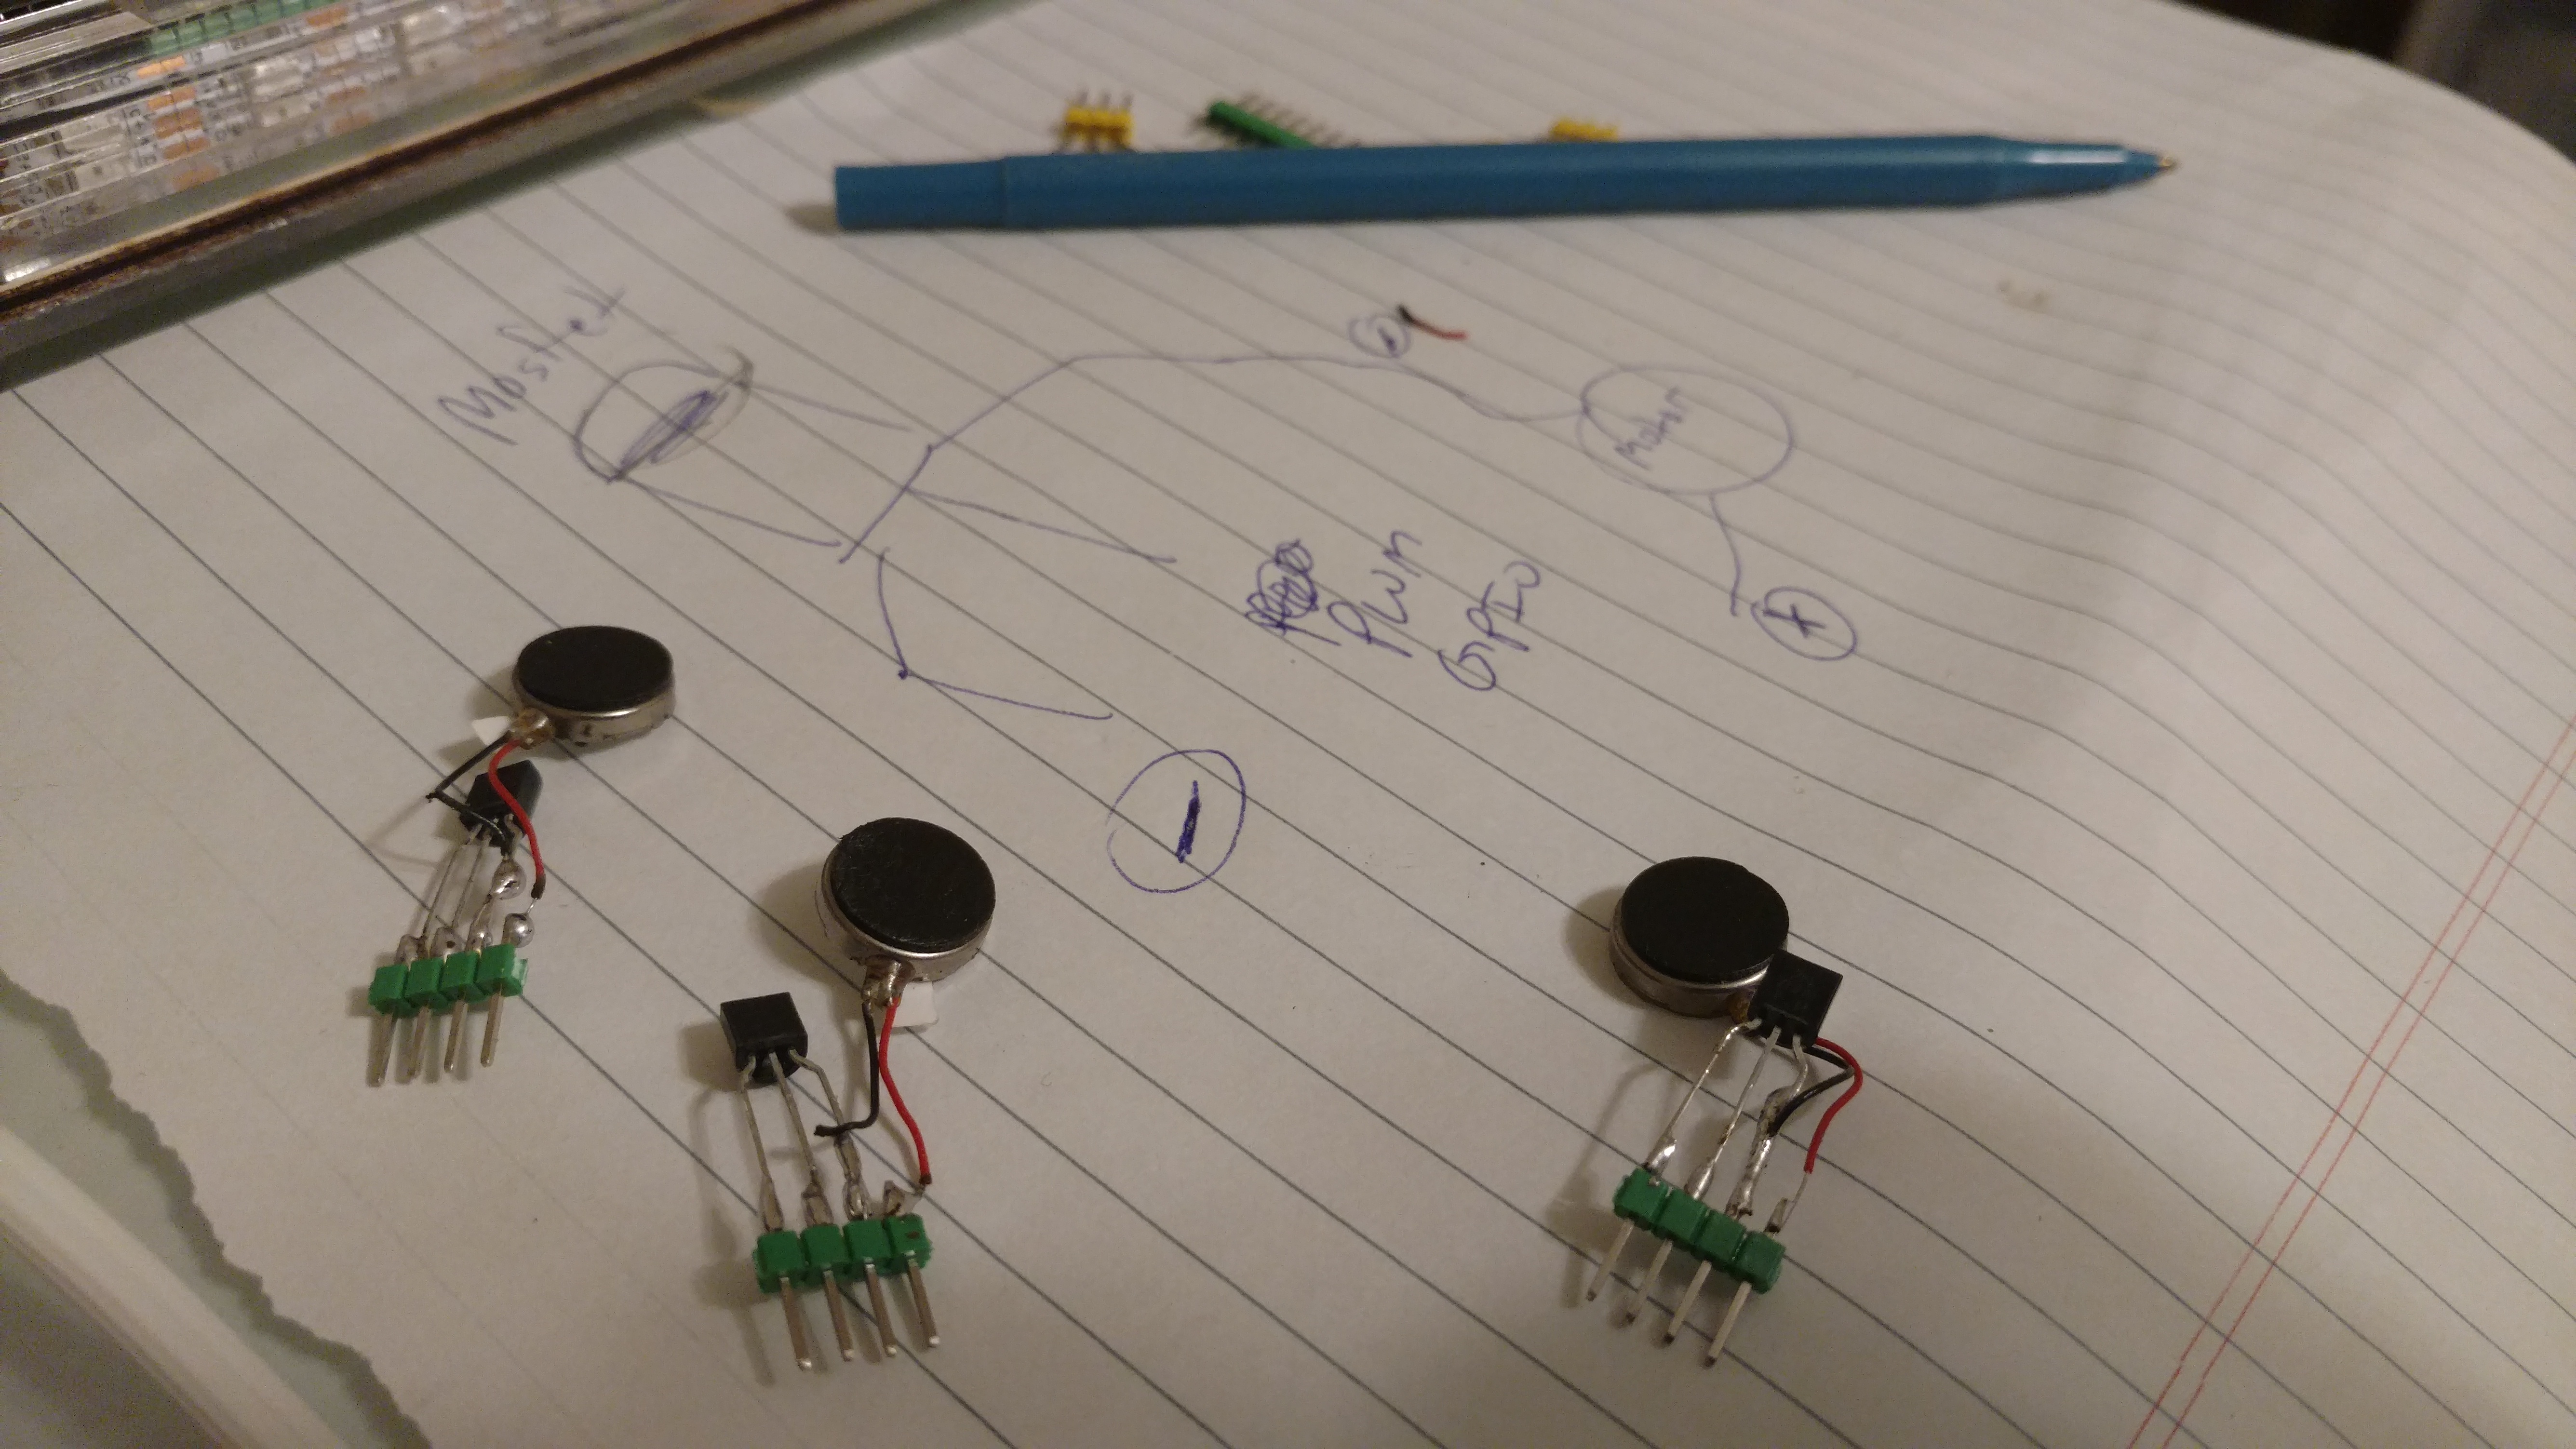 Mosfett
Motor
PWM
GPIO
+
-